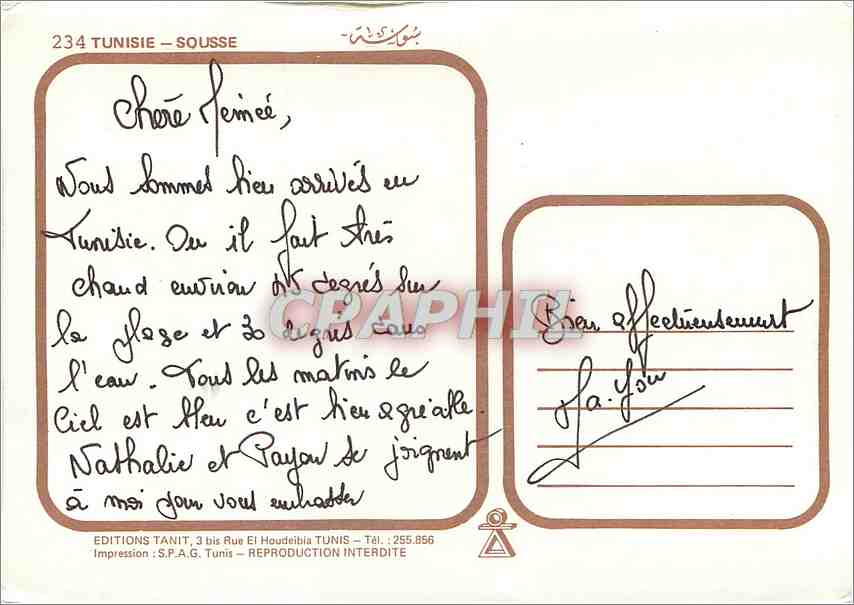 234 TUNISIE – SOUSSE
سوسة
Chère
Nous sommes bien arrivés en
Tunisie. Ou il fait très
chaud environ 45 degrés sur
la plage et 30 degrés dans
l'eau. Tous les matins le
Ciel est bleu c'est bien agréable.
Nathalie et Payou se joignent
à moi pour vous embrasser
Bien affectueusement
CPAPHIL
EDITIONS TANIT, 3 bis Rue El Houdeibia TUNIS – Tél. : 255.856
Impression : S.P.A.G. Tunis – REPRODUCTION INTERDITE